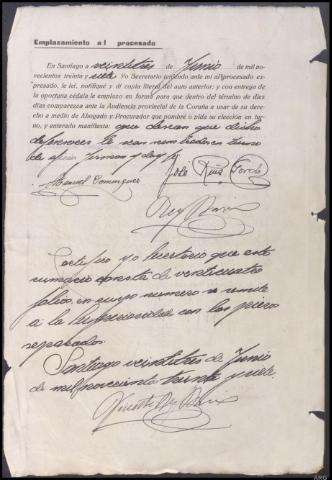 Emplazamiento al procesado
En Santiago a veintitres de Junio de mil no-
vecientos treinta y siete Yo Secretario teniendo ante mi al procesado ex-
presado, le leí, notifiqué y di copia literal del auto anterior; y con entrega de
la oportuna cédula le emplazo en forma para que dentro del término de diez
días comparezca ante la Audiencia provincial de la Coruña a usar de su dere-
cho a medio de Abogado y Procurador que nombre o pida su elección en tur-
no, y enterado manifiesta: que desean que dichos
defensores le sean nombrados en turno
de oficio firman y doy fe
Manuel Dominguez José Ruiz
Rey
Certifico yo Secretario que este
sumario consta de veinticuatro
folios, en cuyo numero se remite
a la Superioridad con las piezas
separadas.
Santiago veintitres de Junio
de mil novecientos treinta y siete.
Vicente Rey